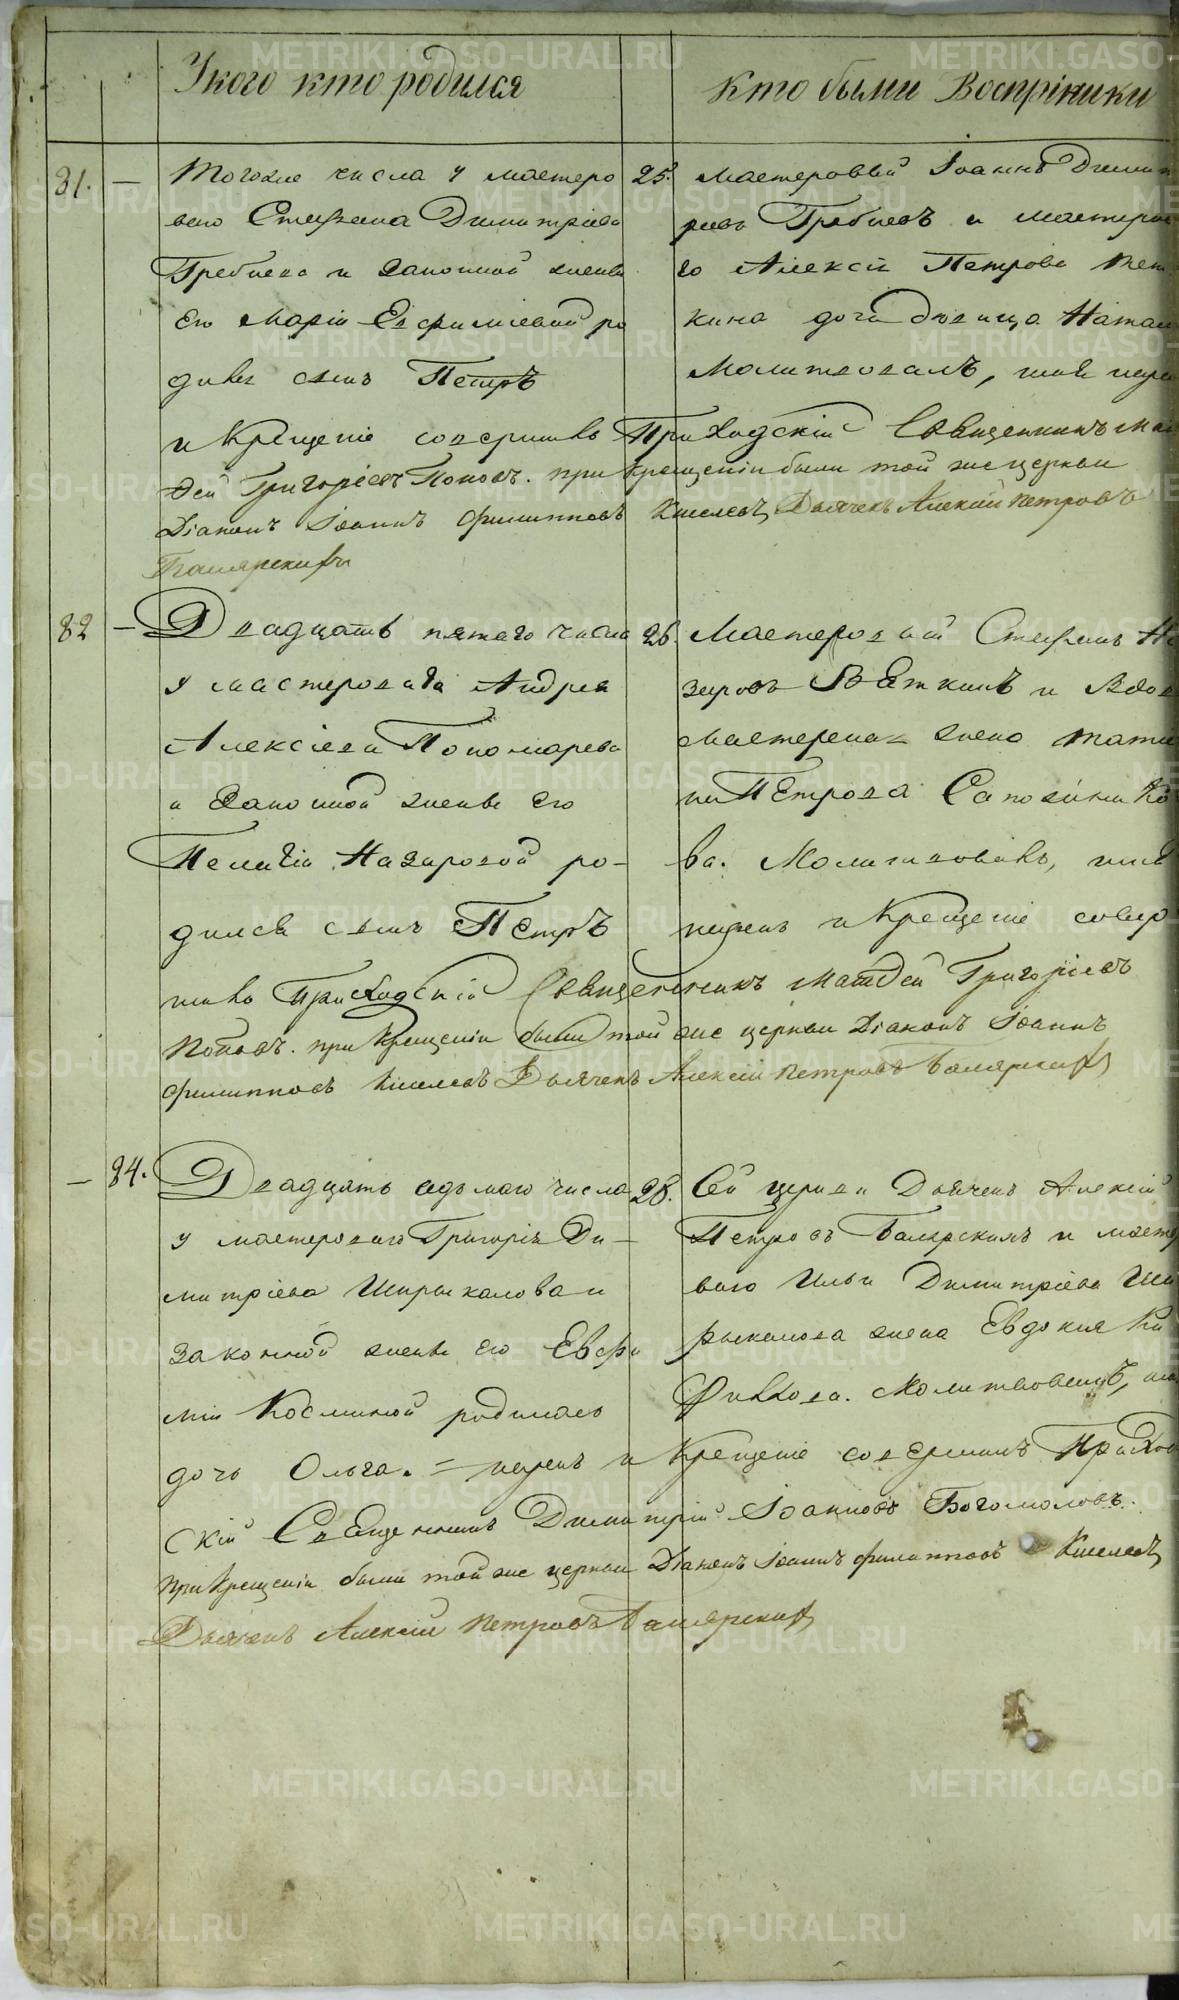 У кого кто родился
Кто были Воспріники
81. — Тогоже числа у мастеро
ваго Стефана Димитріева
Гребнева и законной жены
Его Маріи Евфиміевой ро
дился сынъ Петръ
25. Мастеровый Іоаннъ Димит
ріевъ Гребневъ и мастеров
го Алексія Петрова
кина дочь девица Натал
Молитвовалъ, имя наре
и Крещеніе совершилъ Приходскій Священникъ Мат
ѳей Григоріевъ Поповъ. при крещеніи были той же церкви
Діаконъ Іоаннъ Филипповъ Киселевъ, Дьячекъ Алексій Петровъ
82 — Двадцать пятаго числа
у мастероваго Андрея
Алексіева Пономарева
и Законной жены Его
Пелагіи Назаровой ро-
дился сынъ Петръ
26. Мастеровый Стефанъ На
заровъ Вяткинъ и Вдов
Мастерская жена Татия
на Петрова Сапожнико
ва. Молитвовалъ, имя
нарекъ и Крещеніе совер
шилъ Приходскій Священникъ Матѳей Григоріевъ
Поповъ. при Крещеніи были той же церкви Діаконъ Іоаннъ
Филипповъ Киселевъ Дьячекъ Алексій Петровъ
— 84. Двадцать седьмаго числа
у мастероваго Григорія Ди-
митріева Ширыкалова и
законной жены его Евфи
міи Косминой родилась
дочь Ольга. = нарекъ и Крещеніе совершилъ Приход
28. Сей церкви Дьячекъ Алексій
Петровъ и масте
ваго Ильи Димитріева Ши
рыкалова жена Евдокия Ни
Молитвовалъ,
скій Священникъ Димитрій Іоанновъ Богомоловъ.
При Крещеніи были той же церкви Діаконъ Іоаннъ Филипповъ Киселевъ,
Дьячекъ Алексій Петровъ
METRIKI.GASO-URAL.RU